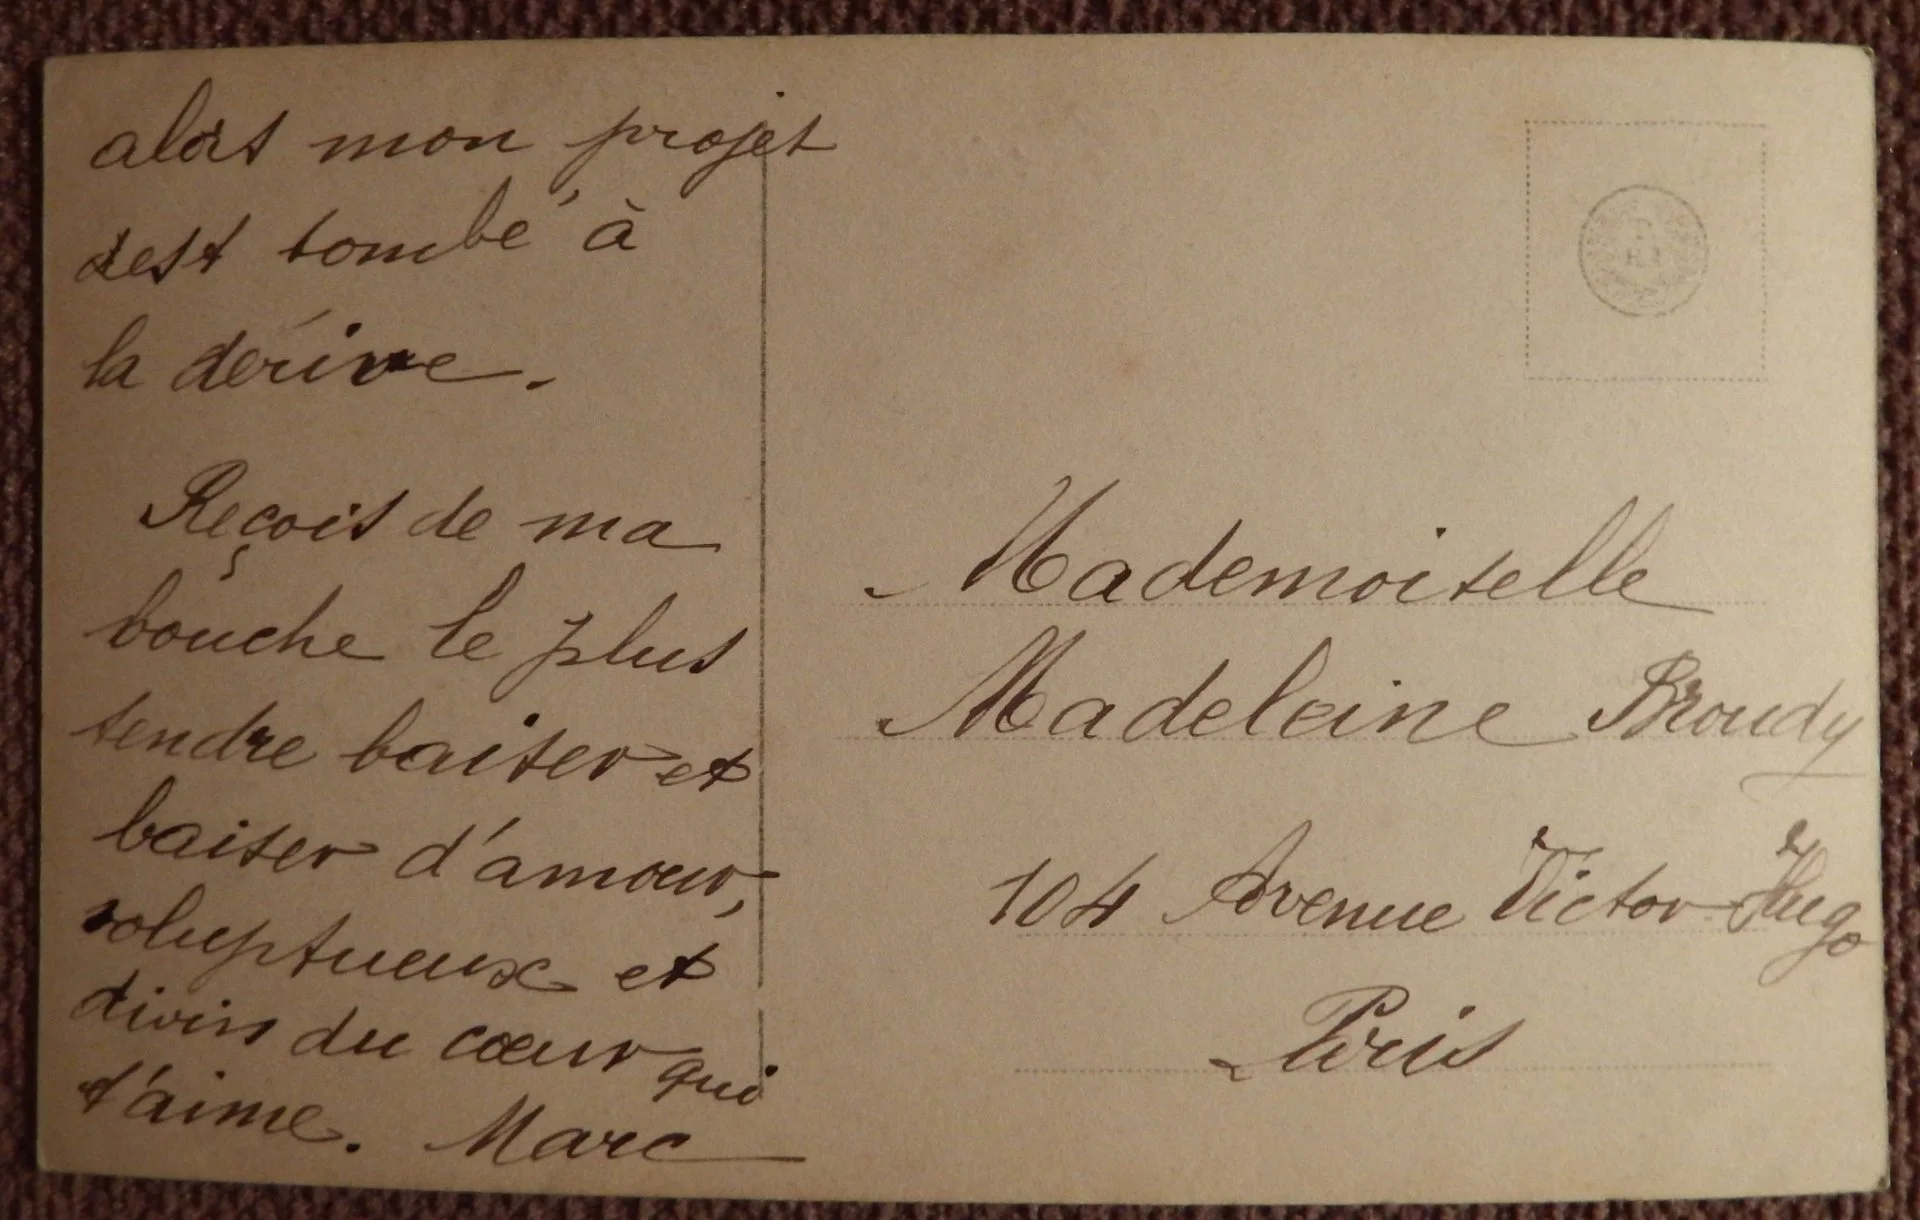 alors mon projet
s'est tombé à
la dérive.
Reçois de ma
bouche le plus
tendre baiser et
baiser d'amour,
voluptueux et
divin du cœur qui
t'aime. Marc
Mademoiselle
Madeleine Broudy
104 Avenue Victor Hugo
Paris